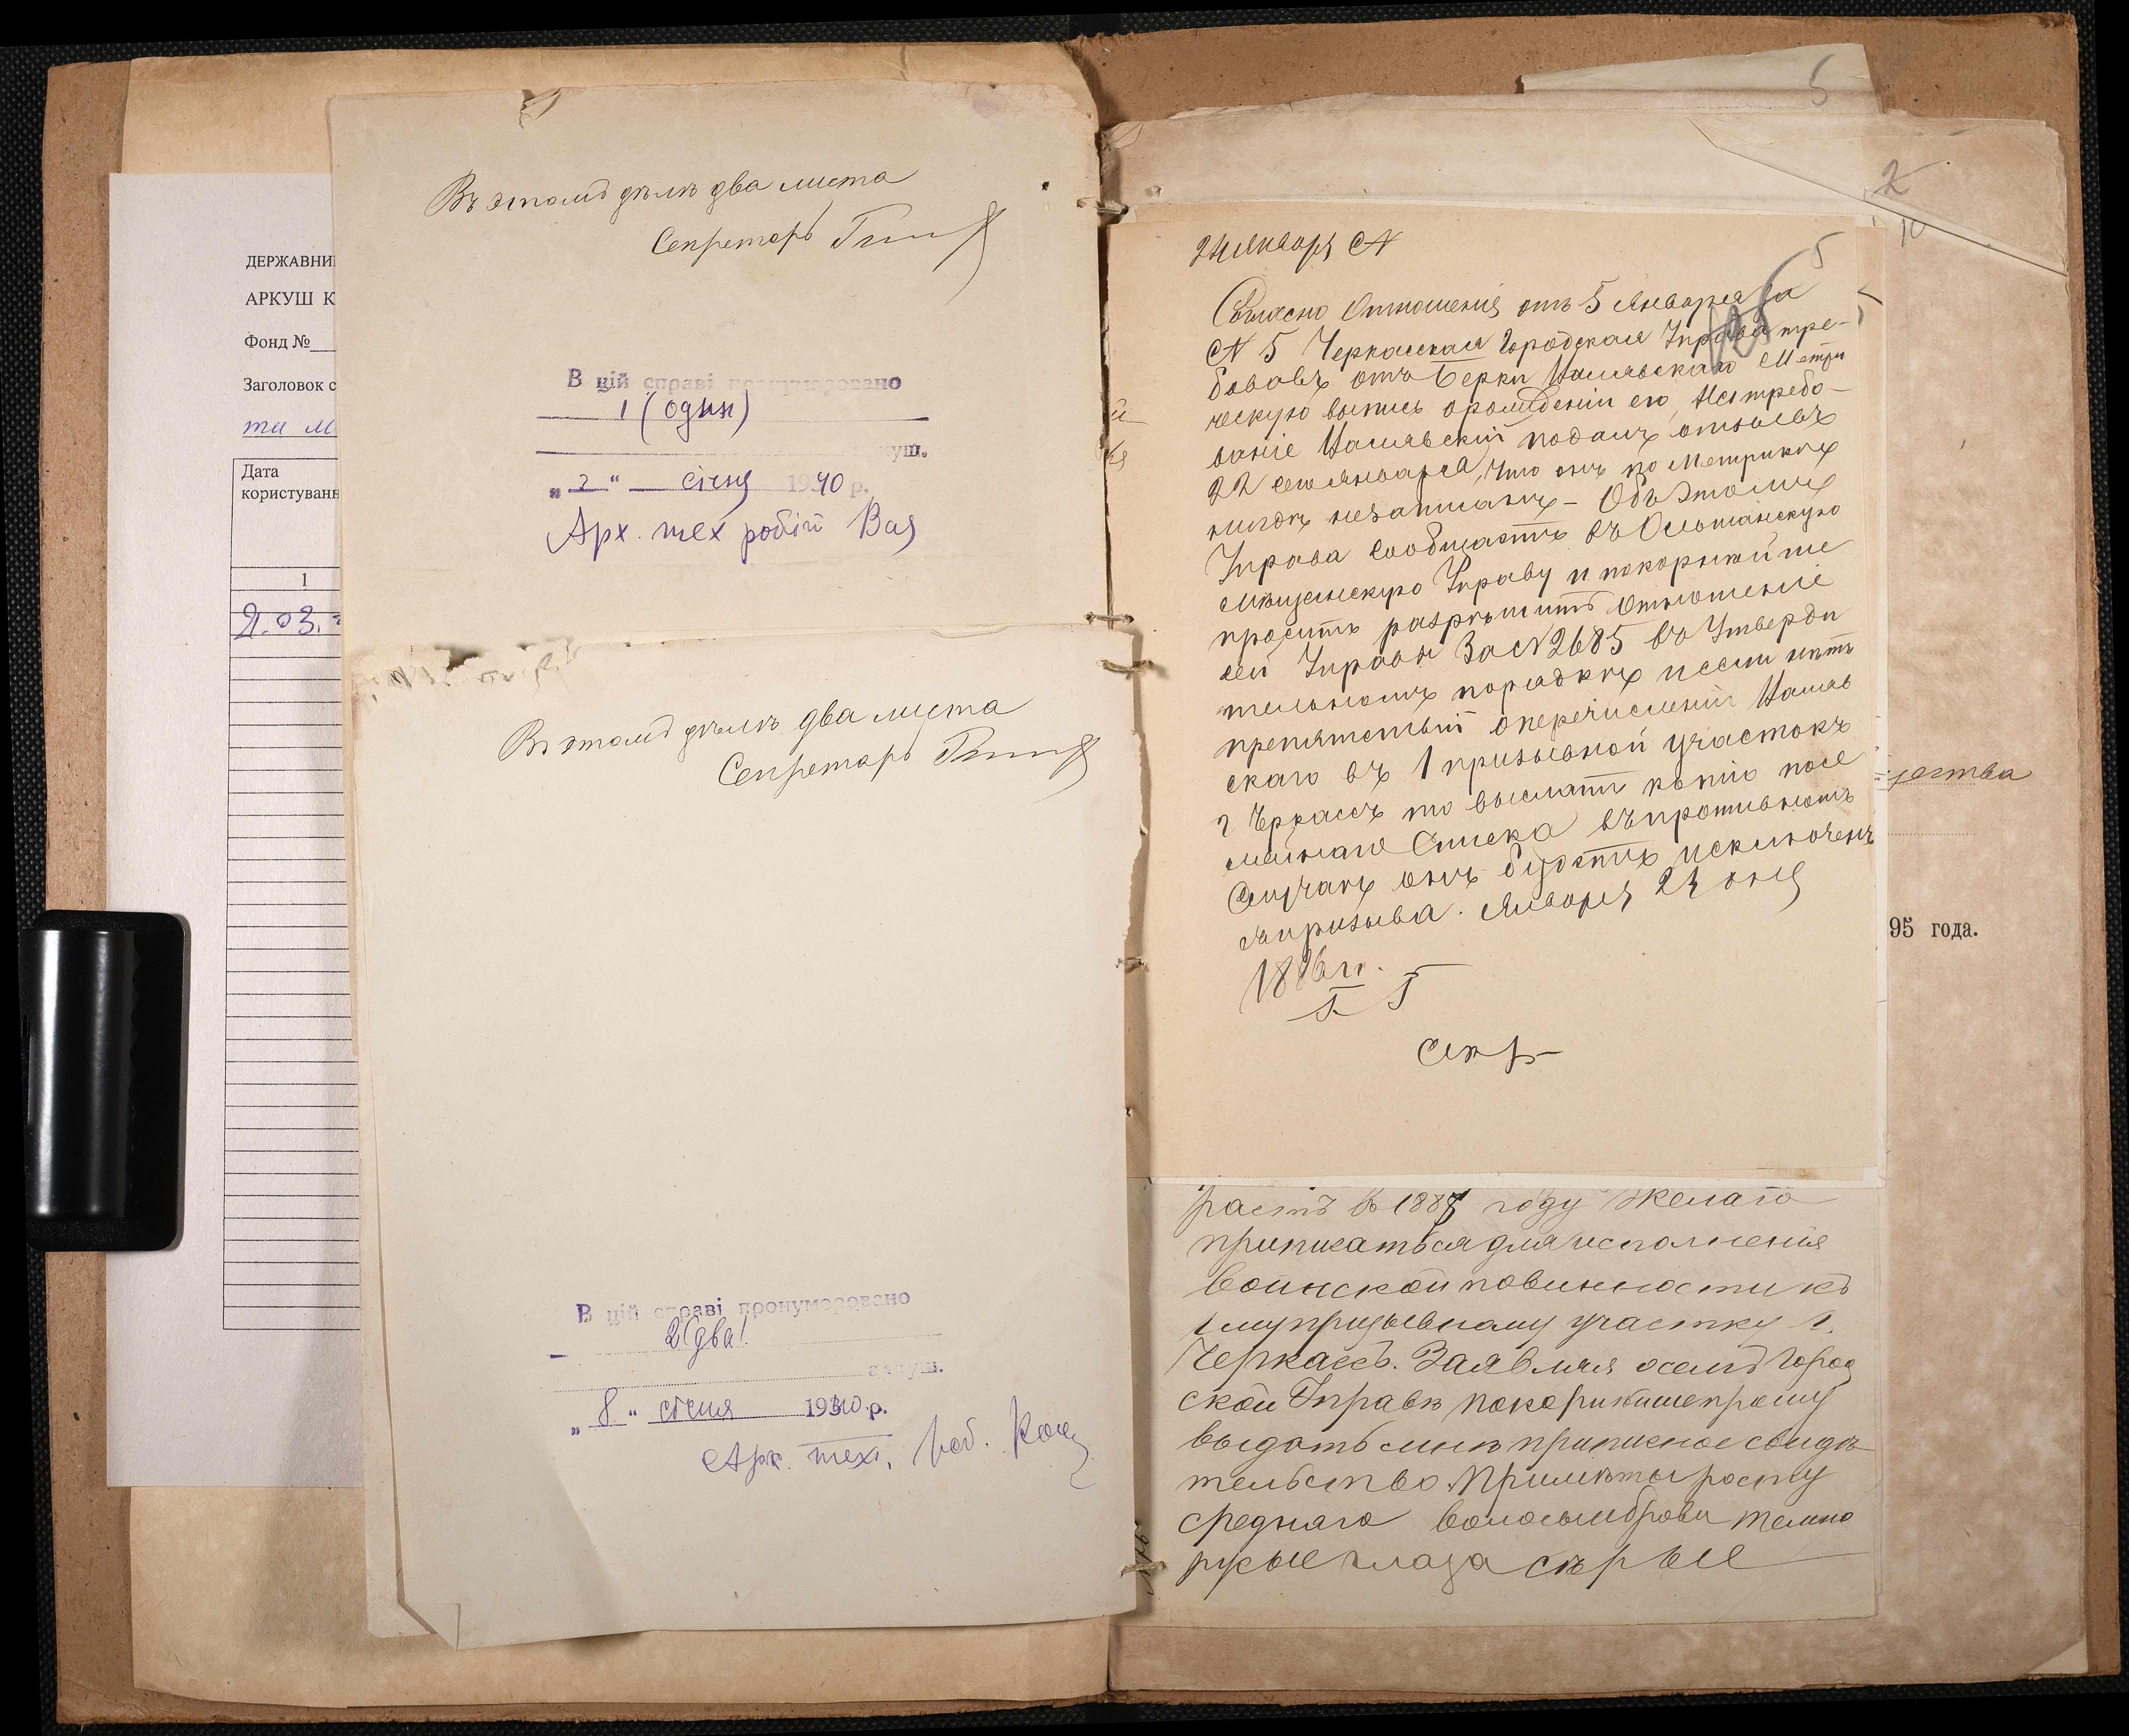 ДЕРЖАВНИ
АРКУШ К
Фонд №
Заголовок с
та м
Дата
користуванн
1
Въ этомъ дѣлѣ два листа
Секретарь
В цій справі пронумеровано
1 (один)
куш.
„ 2 “ січня 1940 р.
Арх. тех робіт
Въ этомъ дѣлѣ два листа
Секретарь
В цій справі пронумеровано
2 (два)
аркуш.
„ 8 “ січня 1940 р.
Арх. тех. роб.
5
2
10
24 Января №
5
Согласно Отношенія отъ 5 Января за
№ 5 Черкасская Городская Управа тре-
бовавъ отъ Берки Метри
ческую выпись о рожденіи его, На требо-
ваніе подалъ отзывъ
22 сего Января, что онъ по Метрикѣ
нигдѣ не записанъ – Объ этомъ
Управа сообщаетъ въ Ольшанскую
мѣщанскую Управу и покорнѣйше
проситъ разрѣшить отношеніе
сей Управы За № 2685 въ Утверди
тельномъ порядкѣ и если нѣтъ
препятствій о перечисленіи
скаго въ 1 призывной участокъ
г Черкассъ то выслать копію посе
мейнаго Списка въ противномъ
Случаѣ онъ будетъ исключенъ
призыва. Января 24 дня
1886 г.
Секр
ества
95 года.
растъ въ 1887 году Желаю
приписаться для исполненія
воинской повинности къ
1 му призывному участку г.
Черкассъ. Заявляя о семъ Город
ской Управѣ покорнѣйше прошу
выдать мнѣ приписное свидѣ
тельство. Примѣты росту
средняго волосы и брови темно
русые глаза сѣрые